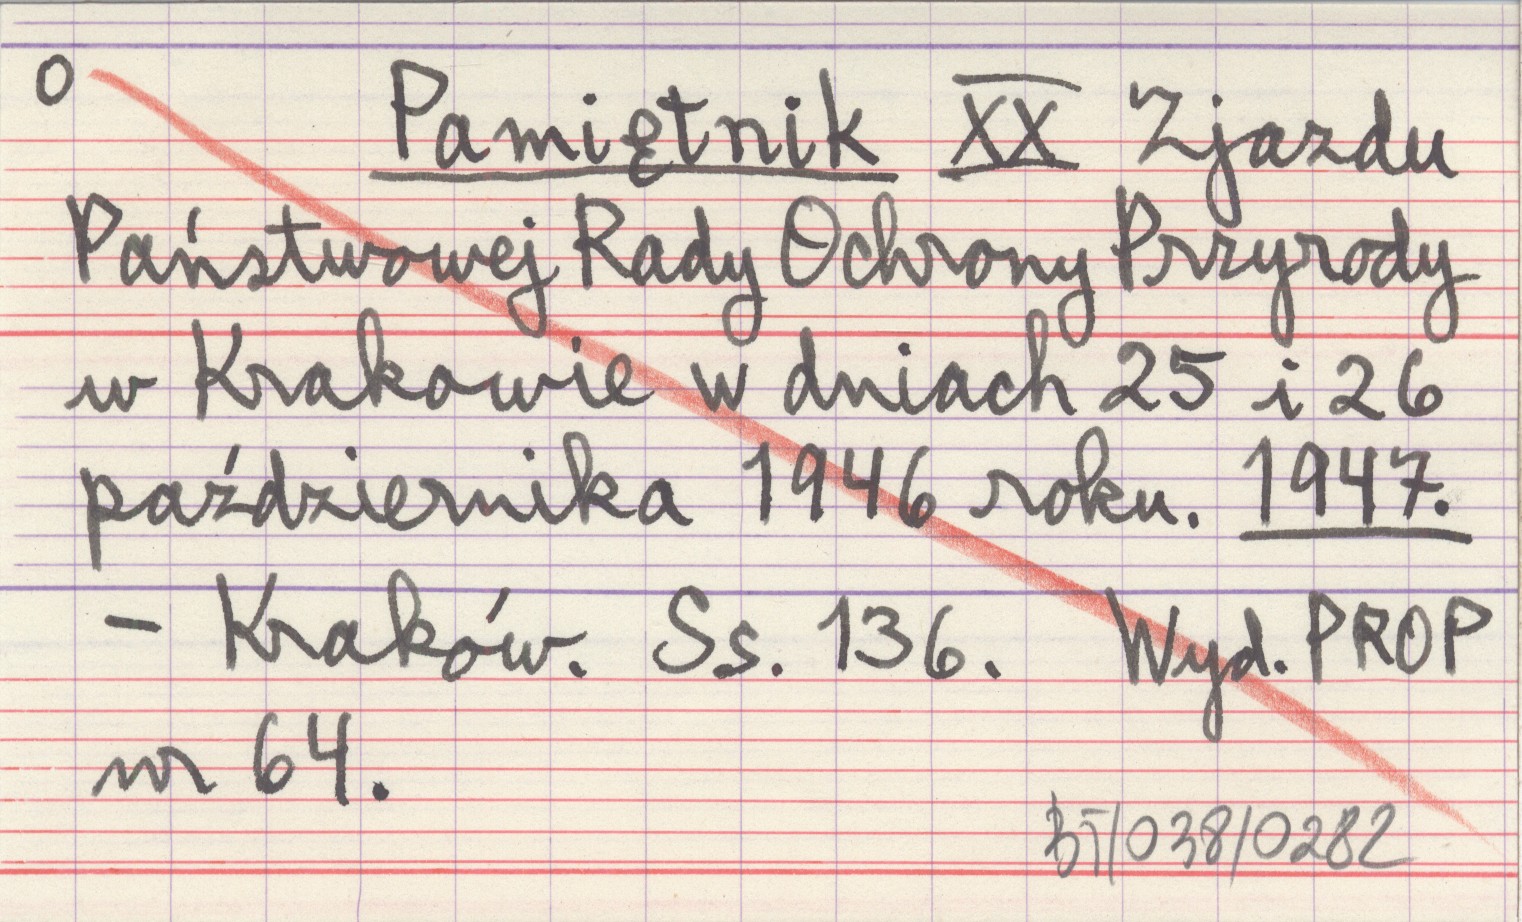 O Pamiętnik XX Zjazdu
Państwowej Rady Ochrony Przyrody
w Krakowie w dniach 25 i 26
października 1946 roku. 1947.
– Kraków. Ss. 136. Wyd. PROP
nr 64.
BT/038/0282